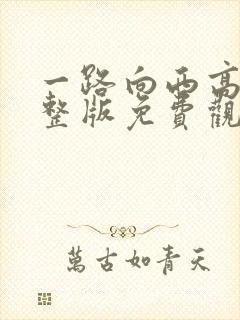 一路向西高
整版免費觀
萬古如青天